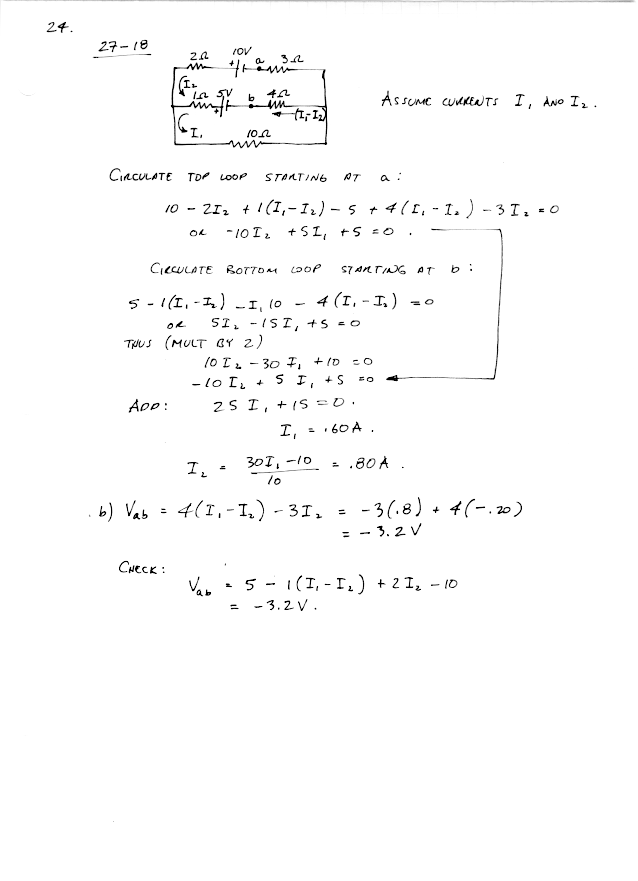 24.
27-18
2Ω 10V a 3Ω
+
I₂
1Ω 5V b 4Ω
+ (I₁-I₂)
I₁ 10Ω
ASSUME CURRENTS I₁ AND I₂.
CIRCULATE TOP LOOP STARTING AT a:
10 - 2I₂ + 1(I₁-I₂) - 5 + 4(I₁-I₂) - 3I₂ = 0
OR -10I₂ +5I₁ +5 = 0.
CIRCULATE BOTTOM LOOP STARTING AT b:
5 - 1(I₁-I₂) - I₁10 - 4(I₁-I₂) = 0
OR 5I₂ -15I₁ +5 = 0
THUS (MULT BY 2)
10I₂ -30I₁ +10 = 0
-10I₂ + 5I₁ +5 = 0
ADD: 25I₁ +15 = 0.
I₁ = .60A.
I₂ = 30I₁-10/10 = .80A.
b) Vab = 4(I₁-I₂) - 3I₂ = -3(.8) + 4(-.20)
= -3.2V
CHECK:
Vab = 5 - 1(I₁-I₂) + 2I₂ - 10
= -3.2V.